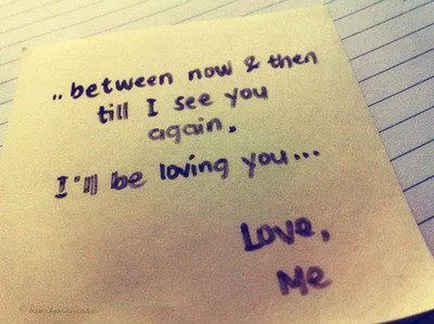 .. between now & then
till I see you
again.
I'll be loving you...
Love,
Me